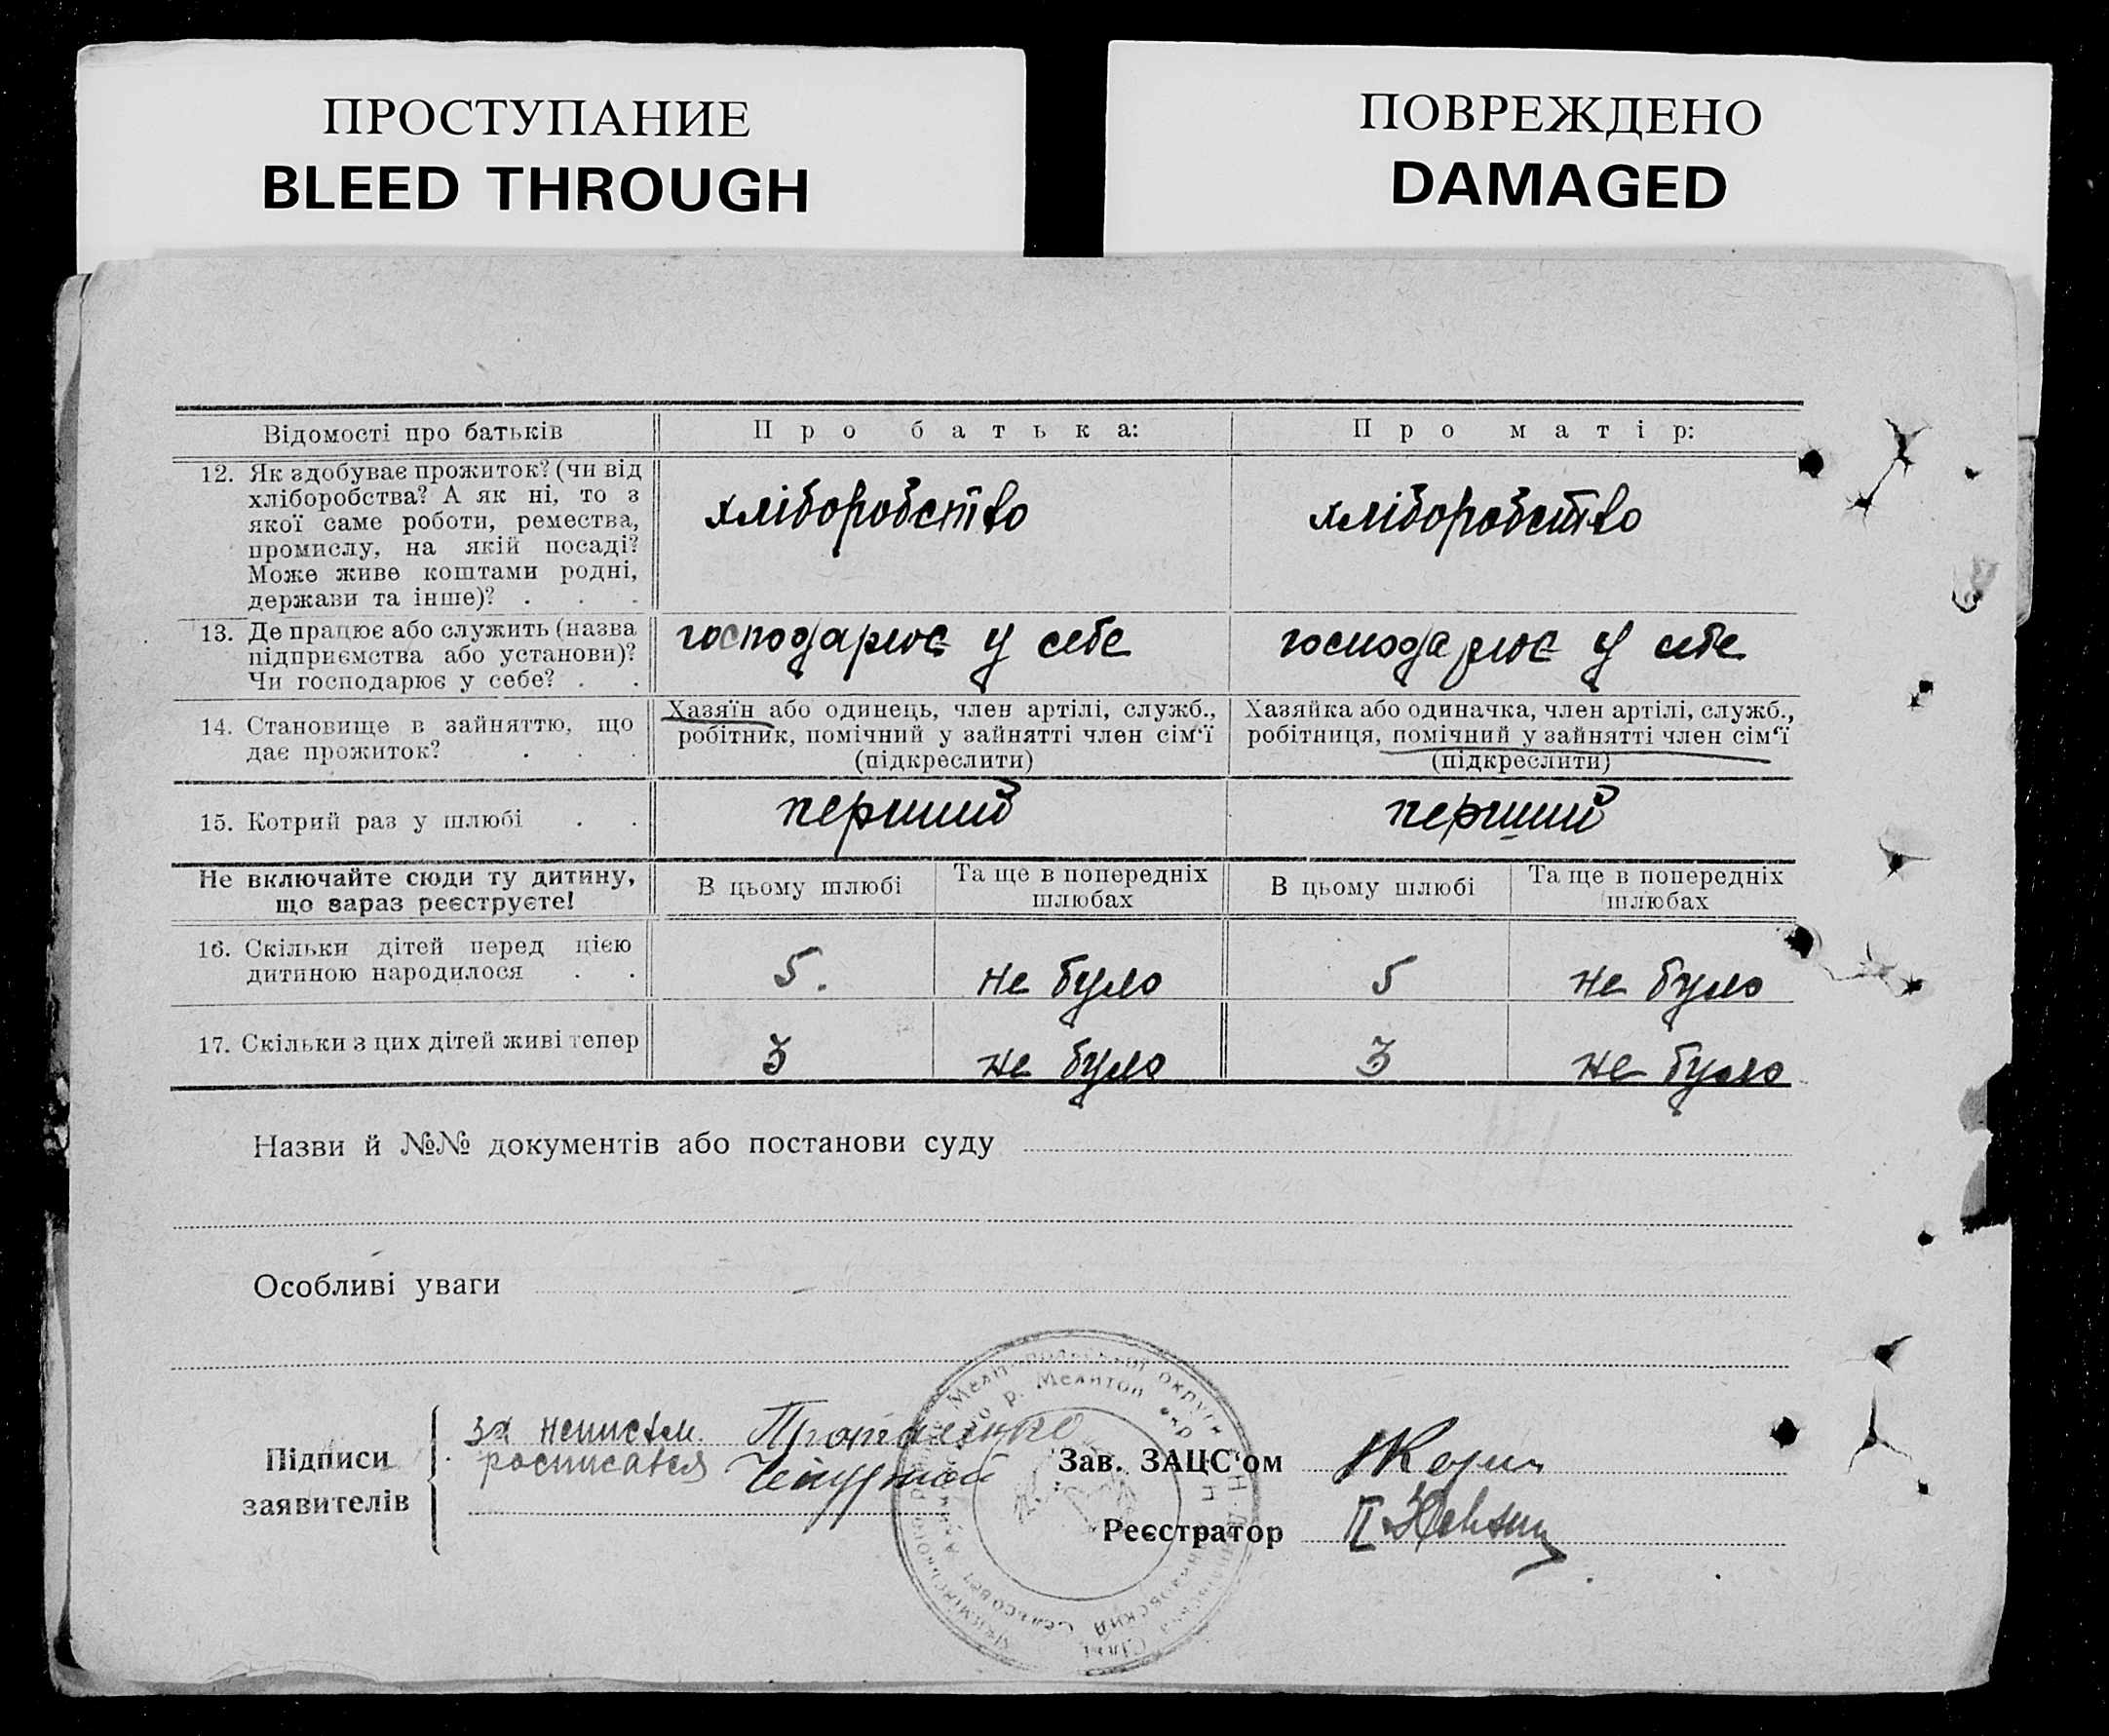 ПРОСТУПАНИЕ
BLEED THROUGH
ПОВРЕЖДЕНО
DAMAGED
Відомості про батьків
Про батька:
Про матір:
12. Як здобуває прожиток? (чи від
хліборобства? А як ні, то з
якої саме роботи, ремества,
промислу, на якій посаді?
Може живе коштами родні,
держави та інше)? . . .
хліборобство
хліборобство
13. Де працює або служить (назва
підприємства або установи)?
Чи господарює у себе? . .
господарює у себе
господарює у себе
14. Становище в зайняттю, що
дає прожиток? . . .
Хазяїн або одинець, член артілі, служб.,
робітник, помічний у зайнятті член сім'ї
(підкреслити)
Хазяйка або одиначка, член артілі, служб.,
робітниця, помічний у зайнятті член сім'ї
(підкреслити)
15. Котрий раз у шлюбі . .
перший
перший
Не включайте сюди ту дитину,
що зараз реєструєте!
В цьому шлюбі
Та ще в попередніх
шлюбах
В цьому шлюбі
Та ще в попередніх
шлюбах
16. Скільки дітей перед цією
дитиною народилося . .
5.
не було
5
не було
17. Скільки з цих дітей живі тепер
3
не було
3
не було
Назви й №№ документів або постанови суду
Особливі уваги
Підписи
заявителів
за неписьм.
росписався
Зав. ЗАЦС'ом
Реєстратор